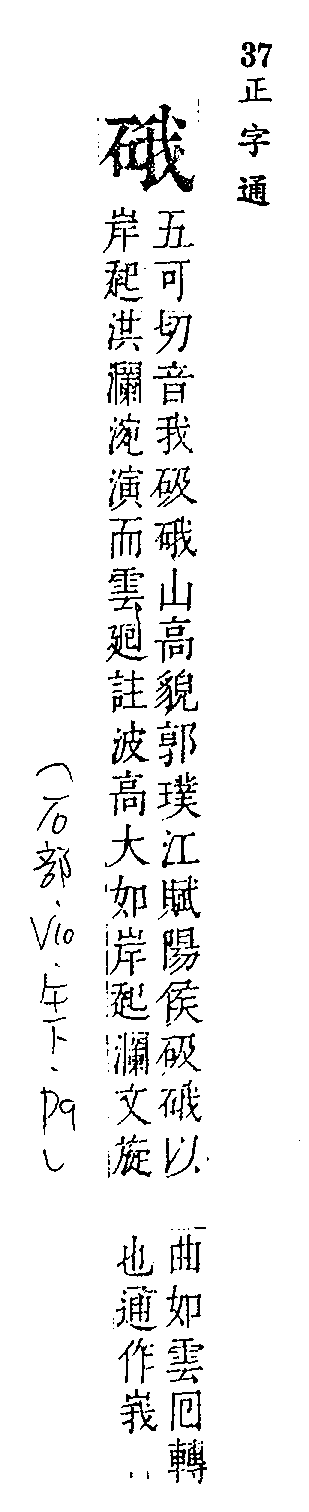 37
正字通
硪
五可切音我砐硪山高貌郭璞江賦陽侯砐硪以
岸起洪瀾涴演而雲廻註波高大如岸起瀾文旋
曲如雲囘轉
也通作峩
(石部.V10.午下.P9)